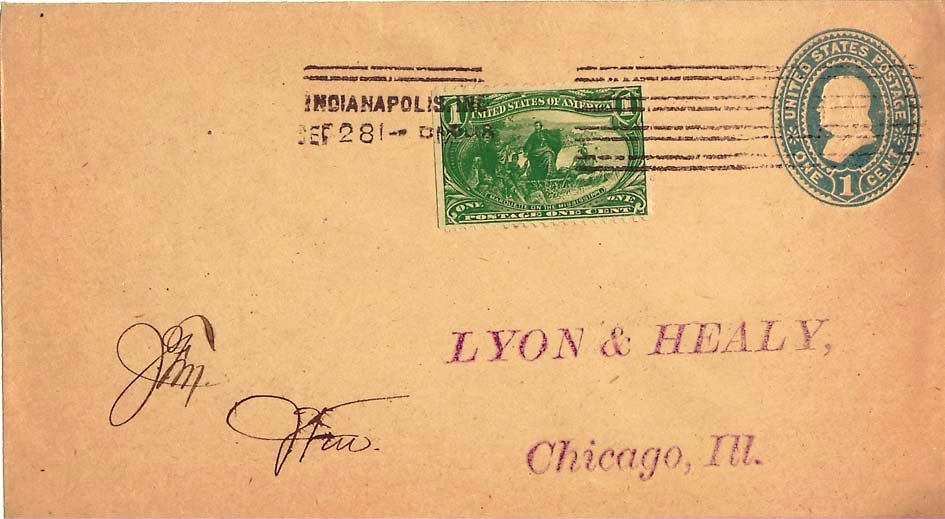 INDIANAPOLIS, IND.
SEP 28 1-
UNITED STATES OF AMERICA
1 1
MARQUETTE ON THE MISSISSIPPI
ONE ONE
POSTAGE ONE CENT
UNITED STATES POSTAGE
ONE 1 CENT
LYON & HEALY,
Chicago, Ill.